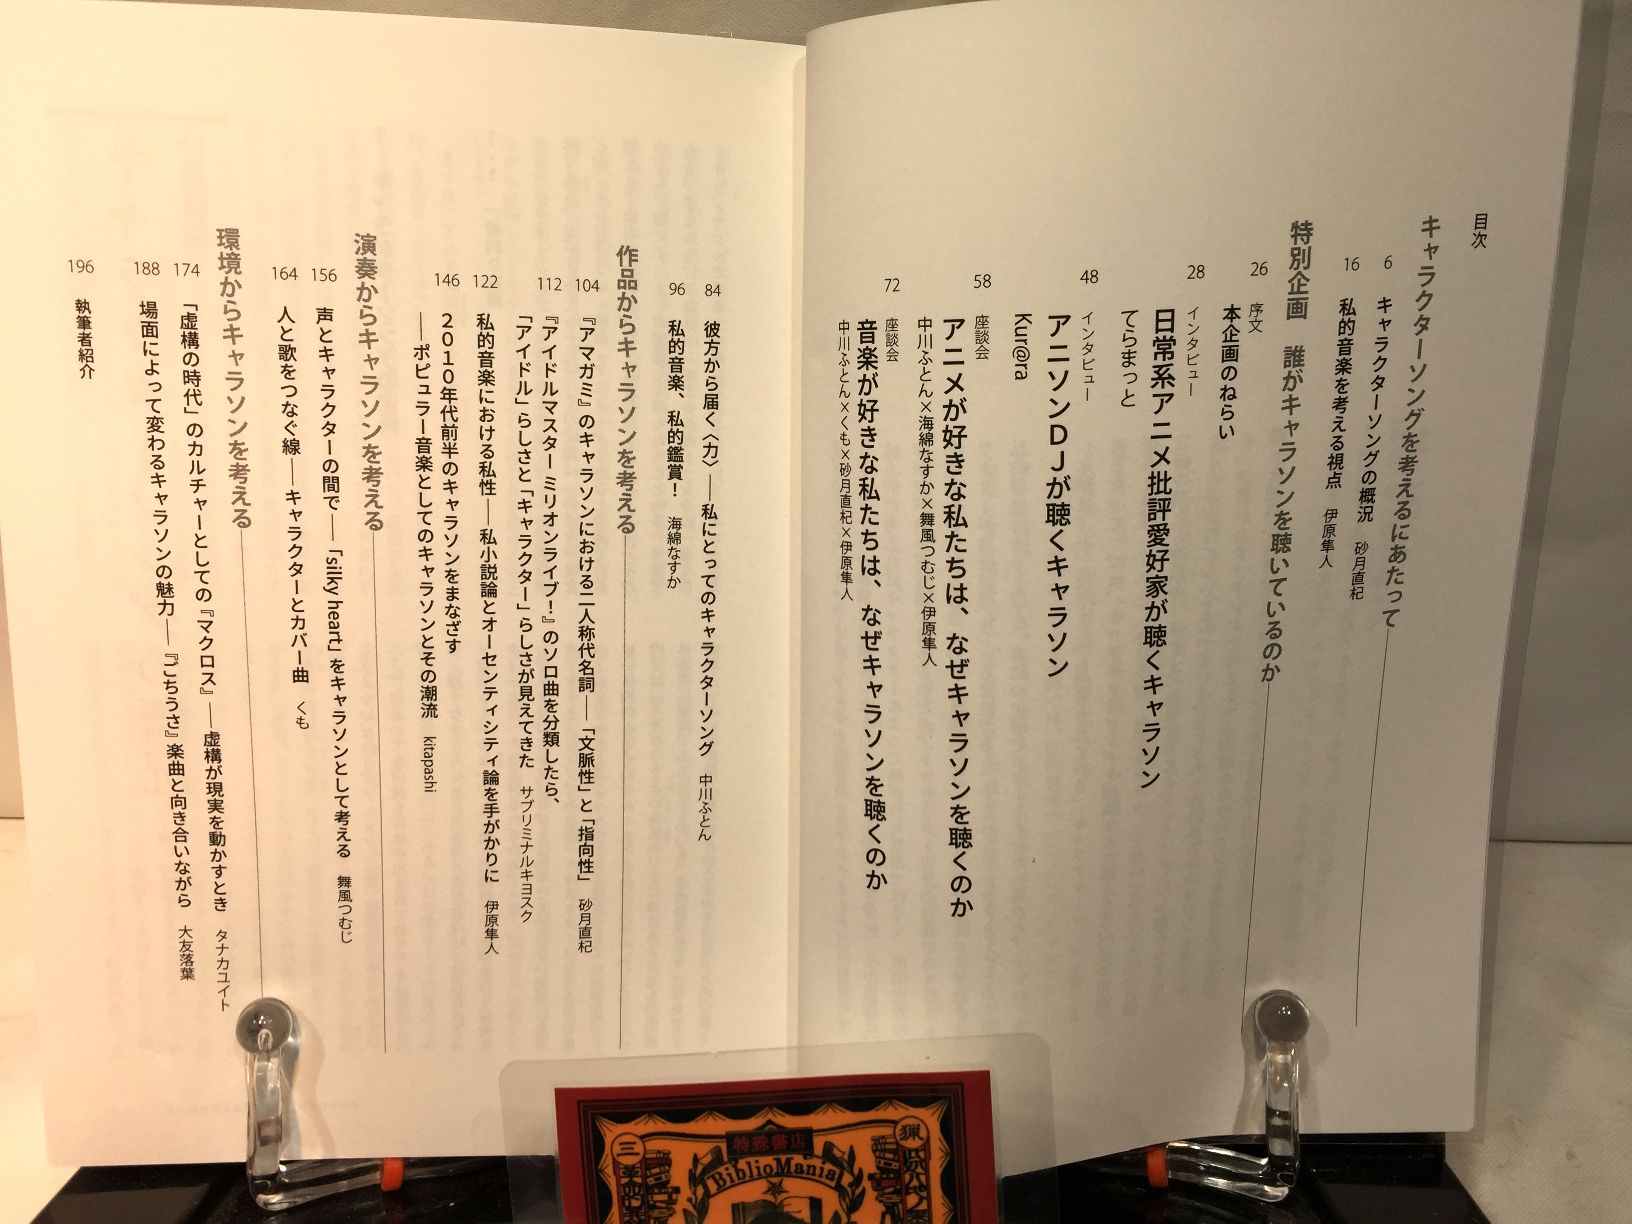 目次
キャラクターソングを考えるにあたって
6 キャラクターソングの概況 砂月直杞
16 私的音楽を考える視点 伊原隼人
特別企画 誰がキャラソンを聴いているのか
26 序文
本企画のねらい
28 インタビュー
日常系アニメ批評愛好家が聴くキャラソン
てらまっと
48 インタビュー
アニソンDJが聴くキャラソン
Kur@ra
58 座談会
アニメが好きな私たちは、なぜキャラソンを聴くのか
中川ふとん×海綿なすか×舞風つむじ×伊原隼人
72 座談会
音楽が好きな私たちは、なぜキャラソンを聴くのか
中川ふとん×くも×砂月直杞×伊原隼人
84 彼方から届く〈力〉――私にとってのキャラクターソング 中川ふとん
96 私的音楽、私的鑑賞! 海綿なすか
作品からキャラソンを考える
104 『アマガミ』のキャラソンにおける二人称代名詞――「文脈性」と「指向性」 砂月直杞
112 『アイドルマスター ミリオンライブ!』のソロ曲を分類したら、
「アイドル」らしさと「キャラクター」らしさが見えてきた サブリミナルキヨスク
122 私的音楽における私性――私小説論とオーセンティシティ論を手がかりに 伊原隼人
146 2010年代前半のキャラソンをまなざす
――ポピュラー音楽としてのキャラソンとその潮流 kitapashi
演奏からキャラソンを考える
156 声とキャラクターの間で――「silky heart」をキャラソンとして考える 舞風つむじ
164 人と歌をつなぐ線――キャラクターとカバー曲 くも
環境からキャラソンを考える
174 「虚構の時代」のカルチャーとしての『マクロス』――虚構が現実を動かすとき タナカユイト
188 場面によって変わるキャラソンの魅力――『ごちうさ』楽曲と向き合いながら 大友落葉
196 執筆者紹介
特殊書店
BiblioMania
猟
三